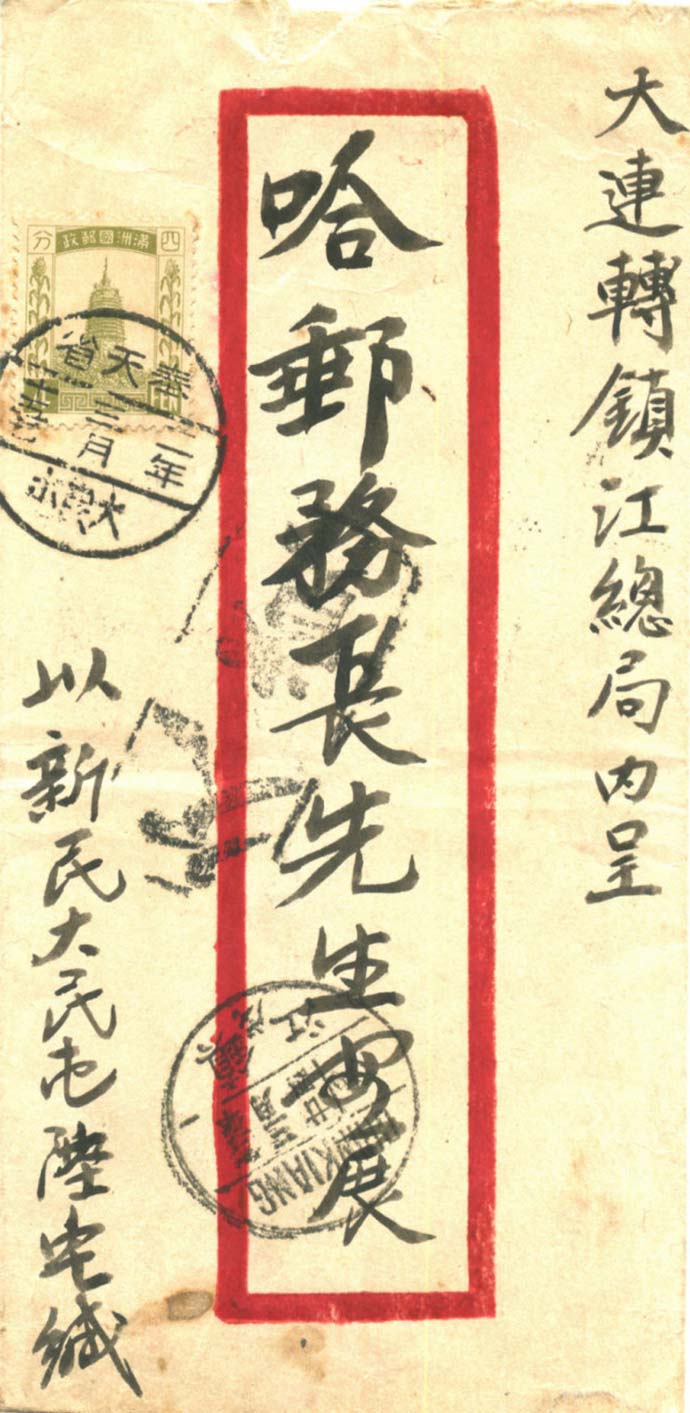 大連轉鎮江總局内呈
哈郵務長先生安展
以新民大民屯陸宅緘
四 滿洲國郵政 分
奉天省
二年
三月
CHINKIANG
鎮江